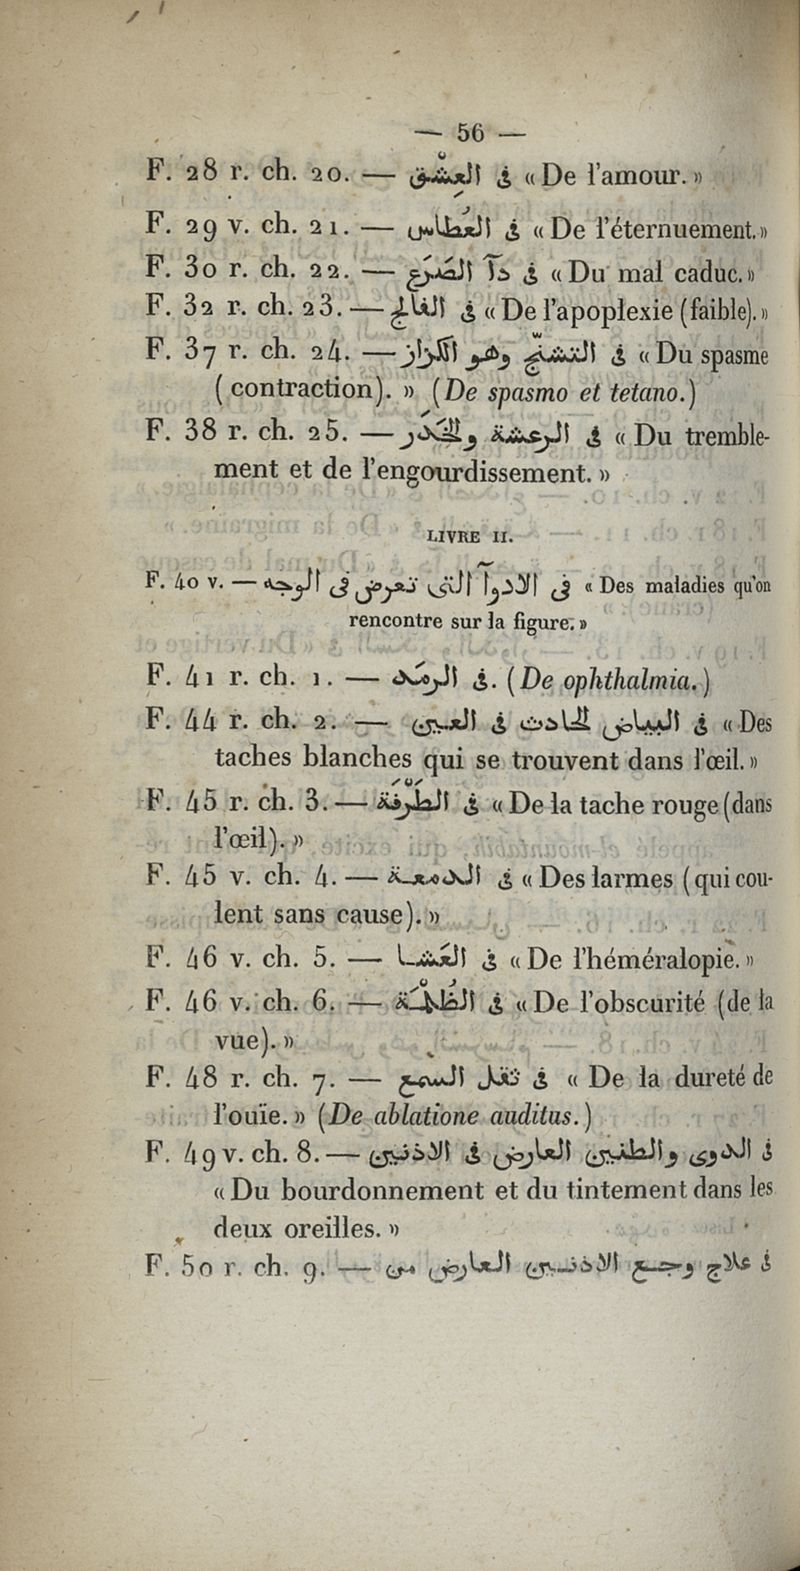 — 56 —
F. 28 r. ch. 20. — في العشْق « De l'amour. »
F. 29 v. ch. 21. — في العُطاس « De l'éternuement. »
F. 30 r. ch. 22. — في دآ الصَرَع « Du mal caduc. »
F. 32 r. ch. 23. — في الفالج « De l'apoplexie (faible). »
F. 37 r. ch. 24. — في التشنّج وهو الكُزاز « Du spasme
(contraction). » (De spasmo et tetano.)
F. 38 r. ch. 25. — في الرعشة والخَدَر « Du tremble-
ment et de l'engourdissement. »
LIVRE II.
F. 40 v. — في الادوآ التي تعرض في الوجه « Des maladies qu'on
rencontre sur la figure. »
F. 41 r. ch. 1. — في الرمَد. (De ophthalmia.)
F. 44 r. ch. 2. — في البياض الحادث في العين « Des
taches blanches qui se trouvent dans l'œil. »
F. 45 r. ch. 3. — في الطَرْفَة « De la tache rouge (dans
l'œil). »
F. 45 v. ch. 4. — في الدمعة « Des larmes (qui cou-
lent sans cause). »
F. 46 v. ch. 5. — في العَشا « De l'héméralopie. »
F. 46 v. ch. 6. — في الظُلْمَة « De l'obscurité (de la
vue). »
F. 48 r. ch. 7. — في ثقل السمع « De la dureté de
l'ouïe. » (De ablatione auditus.)
F. 49 v. ch. 8. — في الدوى والطنين العارض في الاذنين
« Du bourdonnement et du tintement dans les
deux oreilles. »
F. 50 r. ch. 9. — في علاج وجع الاذنين العارض من